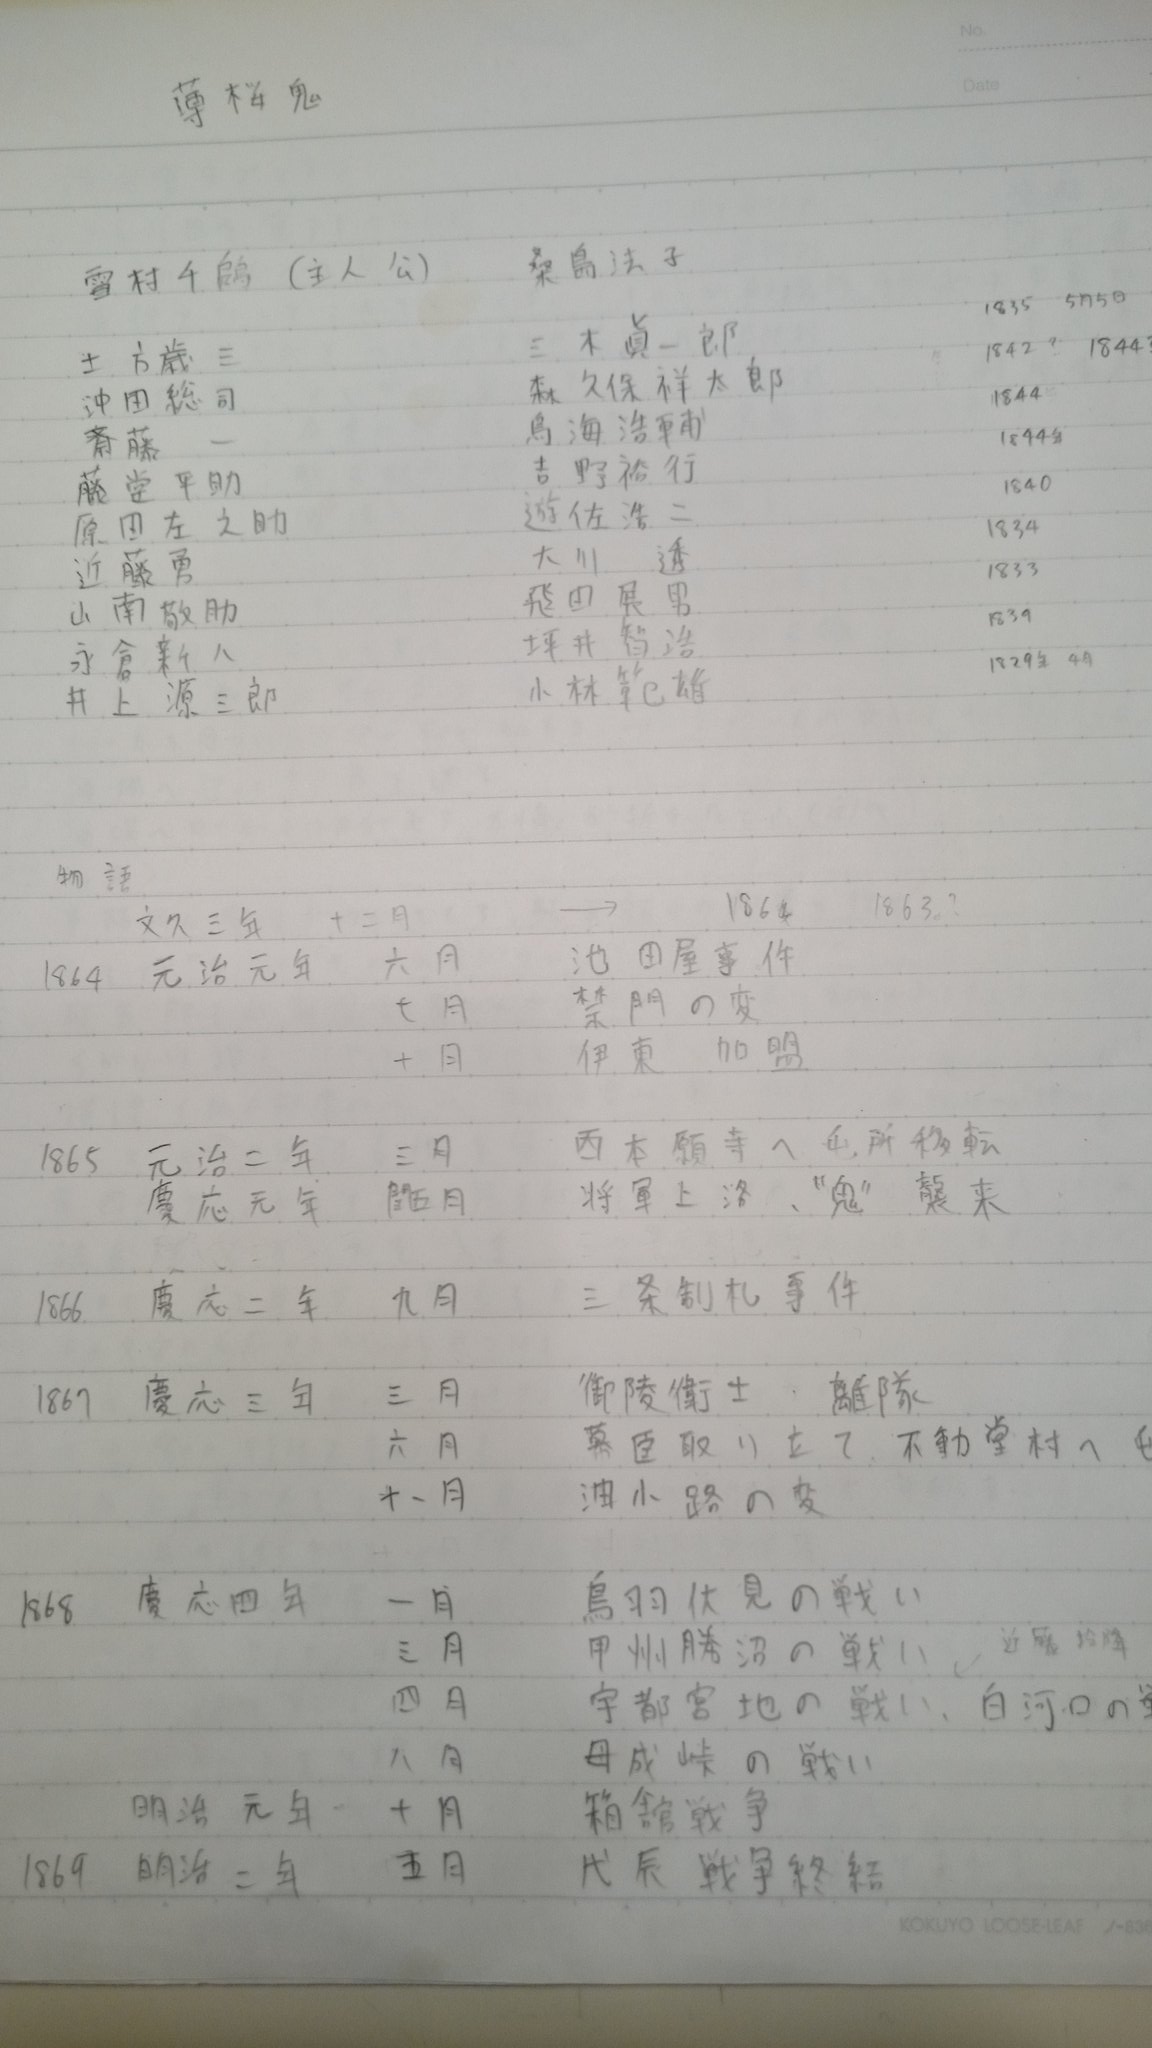 No.
Date
薄桜鬼
雪村千鶴(主人公) 桑島法子
土方歳三 三木眞一郎 1835 5月5日
沖田総司 森久保祥太郎 1842? 1844?
斎藤一 鳥海浩輔 1844
藤堂平助 吉野裕行 1844年
原田左之助 遊佐浩二 1840
近藤勇 大川透 1834
山南敬助 飛田展男 1833
永倉新八 坪井智浩 1839
井上源三郎 小林範雄 1829年 4月
物語
文久三年 十二月 → 1864 1863.?
1864 元治元年 六月 池田屋事件
七月 禁門の変
十月 伊東 加盟
1865 元治二年 三月 西本願寺へ屯所移転
慶応元年 閏五月 将軍上洛、"鬼"襲来
1866 慶応二年 九月 三条制札事件
1867 慶応三年 三月 御陵衛士・離隊
六月 幕臣取り立て、不動堂村へ屯
十一月 油小路の変
1868 慶応四年 一月 鳥羽伏見の戦い
三月 甲州勝沼の戦い 近藤投降
四月 宇都宮地の戦い、白河口の戦
八月 母成峠の戦い
明治元年 十月 箱舘戦争
1869 明治二年 五月 戊辰戦争終結
KOKUYO LOOSE-LEAF ノ-836